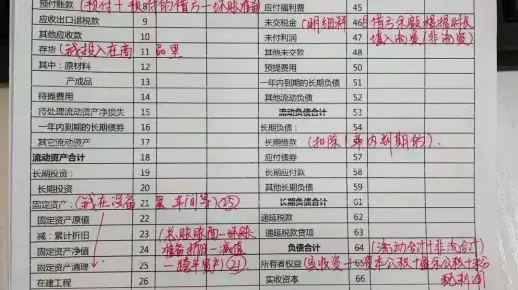 预付账款（预付+预付的借方-坏账准备 应付福利费 45
应收出口退税款 9 未交税金（明细科 46 借方余额根据时长
其他应收款 10 未付利润 47 填入流资/非流资）
存货（我投入在商 11 品里 其他未交款 48
其中：原材料 12 预提费用 50
产成品 13 一年内到期的长期负债 51
待摊费用 14 其他流动负债 52
待处理流动资产净损失 15 流动负债合计 53
一年内到期的长期债券 16 长期负债： 54
其它流动资产 17 长期借款（扣除1年内到期的）
流动资产合计 18 应付债券 57
长期投资： 19 长期应付款 58
长期投资 20 其他长期负债 59
固定资产：（我在设备 21 车间等） 长期负债合计 61
固定资产原值 22 递延税款 62
减：累计折旧 23 （总账账面-坏账 递延税款贷项 63
固定资产净值 24 准备折旧-减值 负债合计 64 （流动合计+非流合计）
固定资产清理 25 所有者权益（实收资 65 本公积+盈余公积+未
在建工程 26 实收资本 66